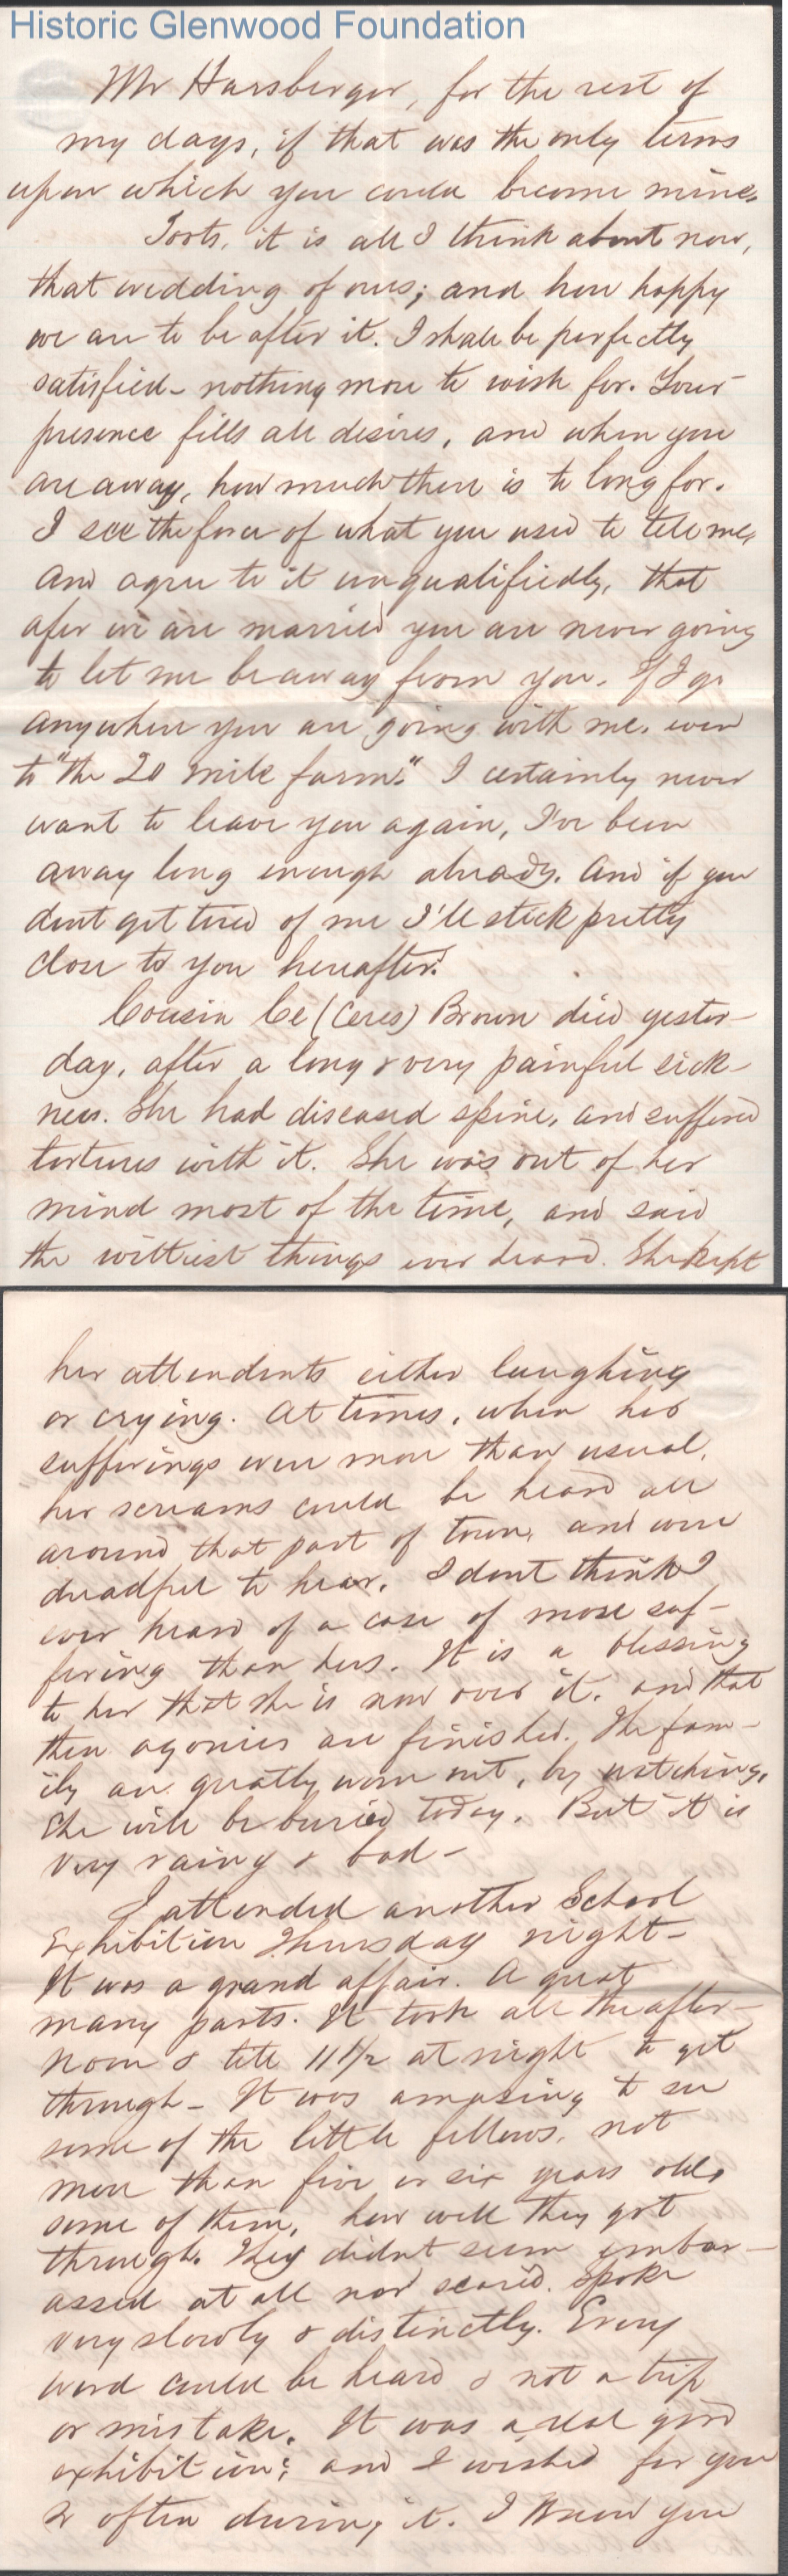 Historic Glenwood Foundation
Mr Harsberger, for the rest of
my days, if that was the only terms
upon which you could become mine.
Toots, it is all I think about now,
that wedding of ours; and how happy
we are to be after it. I shall be perfectly
satisfied - nothing more to wish for. Your
presence fills all desires, and when you
are away, how much there is to long for.
I see the force of what you used to tell me,
and agree to it unqualifiedly, that
afer we are married you are never going
to let me be away from you. If I go
anywhere you are going with me. even
to "the 20 mile farm." I certainly never
want to leave you again, I've been
away long enough already. And if you
dont get tired of me I'll stick pretty
close to you hereafter.
Cousin Ce (Ceres) Brown died yester-
day, after a long & very painful sick-
ness. She had diseased spine, and suffered
tortures with it. She was out of her
mind most of the time, and said
the wittiest things ever heard. She kept
her attendents either laughing
or crying. At times, when her
sufferings were more than usual,
her screams could be heard all
around that part of town, and were
dreadful to hear. I dont think I
ever heard of a case of more suf-
fering than hers. It is a blessing
to her that she is now over it, and that
then agonies are finished. The fam-
ily are greatly worn out, by watching.
She will be buried today. But it is
very rainy & bad -
I attended another School
Exhibition Thursday night -
It was a grand affair. A great
many parts. It took all the after-
noon & till 11 1/2 at night to get
through - It was amusing to see
some of the little fellows, not
more than five or six years old,
some of them, how well they got
through. They didnt seem embar-
assed at all nor scared. Spoke
very slowly & distinctly. Every
word could be heard & not a trip
or mistake. It was a real good
exhibition; and I wished for you
so often during it. I know you